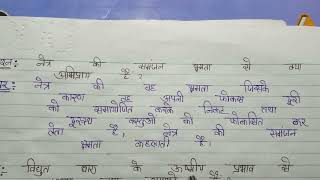 श्न: नेत्र की समंजन क्षमता से क्या
अभिप्राय है ?
र: नेत्र की वह क्षमता जिसके
कारण वह अपनी फोकस दूरी
को समायोजित करके निकट तथा
दूरस्थ वस्तुओं को फोकसित कर
लेता है, नेत्र की समंजन
क्षमता कहलाती है।
: विद्युत धारा के ऊष्मीय प्रभाव से